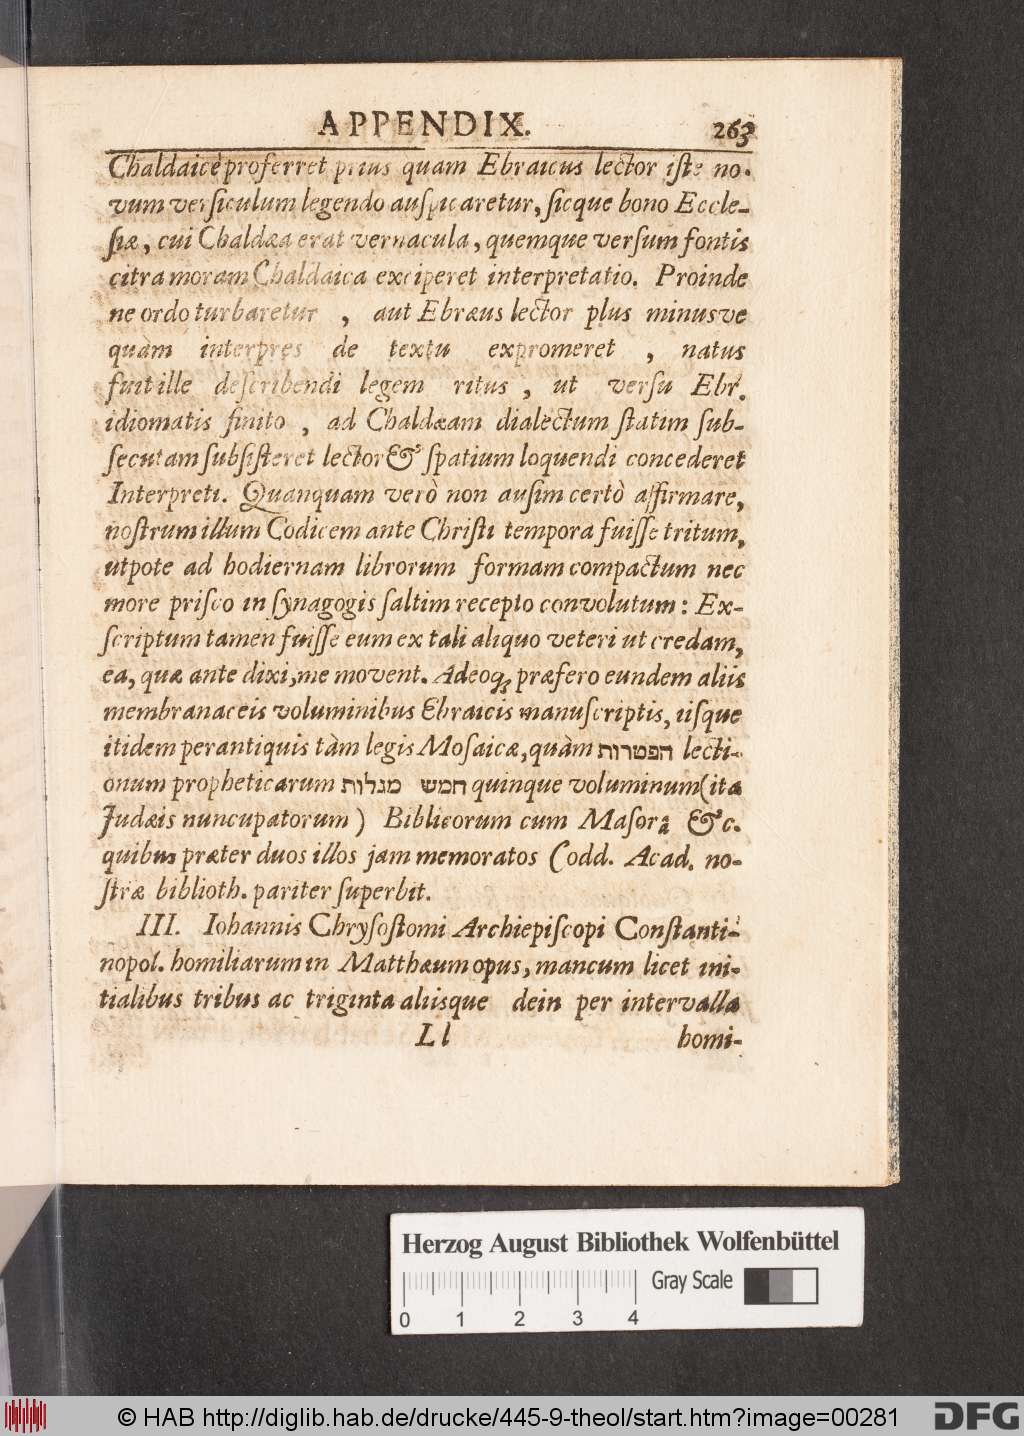 APPENDIX. 263
Chaldaicè proferret prius quam Ebraicus lector iste no-
vum versiculum legendo auspicaretur, sicque bono Eccle-
siæ, cui Chaldæa erat vernacula, quemque versum fontis
citra moram Chaldaica exciperet interpretatio. Proinde
ne ordo turbaretur , aut Ebræus lector plus minusve
quàm interpres de textu expromeret , natus
fuit ille describendi legem ritus , ut versu Ebr.
idiomatis finito , ad Chaldæam dialectum statim sub-
secutam subsisteret lector & spatium loquendi concederet
Interpreti. Quanquam verò non ausim certò affirmare,
nostrum illum Codicem ante Christi tempora fuisse tritum,
utpote ad hodiernam librorum formam compactum nec
more prisco in synagogis saltim recepto convolutum: Ex-
scriptum tamen fuisse eum ex tali aliquo veteri ut credam,
ea, quæ ante dixi, me movent. Adeoq; præfero eundem aliis
membranaceis voluminibus Ebraicis manuscriptis, iisque
itidem perantiquis tàm legis Mosaicæ, quàm הפטרות lecti-
onum propheticarum חמש מגלות quinque voluminum (ita
Judæis nuncupatorum) Biblicorum cum Masorâ &c.
quibus præter duos illos jam memoratos Codd. Acad. no-
stræ biblioth. pariter superbit.
III. Iohannis Chrysostomi Archiepiscopi Constanti-
nopol. homiliarum in Matthæum opus, mancum licet ini-
tialibus tribus ac triginta aliisque dein per intervalla
Ll homi-
Herzog August Bibliothek Wolfenbüttel
Gray Scale
0 1 2 3 4
© HAB http://diglib.hab.de/drucke/445-9-theol/start.htm?image=00281
DFG